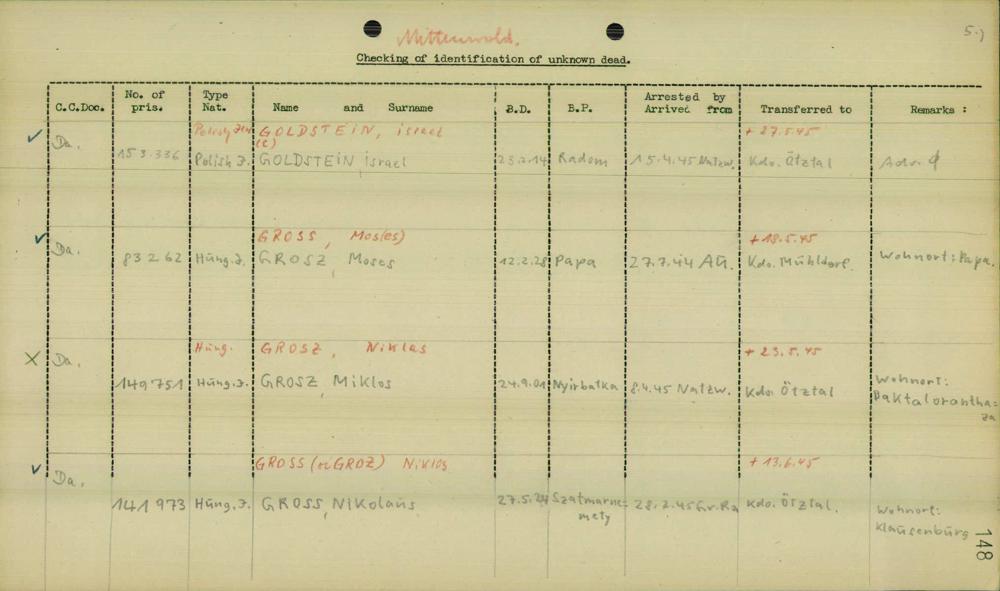 5.)
Mittenwald.
Checking of identification of unknown dead.
C.C.Doc. No. of pris. Type Nat. Name and Surname B.D. B.P. Arrested by Arrived from Transferred to Remarks :
Da. GOLDSTEIN, israel + 27.5.45
153.336 Polish J. GOLDSTEIN israel 23.2.14 Radom 15.4.45 Natzw. Kdo. Ötztal
Da. GROSS, Mos(es) + 18.5.45
83262 Hüng.J. GROSZ, Moses 12.2.28 Papa 27.7.44 Aü. Kdo. Mühldorf. Wohnort: Papa.
Da. Hüng. GROSZ, Niklas + 23.5.45
149751 Hüng.J. GROSZ, Miklos 24.9.01 Nyirbatka 8.4.45 Natzw. Kdo. Ötztal Wohnort:
Baktalorantha=
za
Da. GROSS (GROZ) Niklos + 13.6.45
141973 Hüng.J. GROSS, Nikolaüs 27.5.24 Szatmarne=
mety 28.2.45 Gr.Ro Kdo. Ötztal. Wohnort:
Klaüsenbürg
148